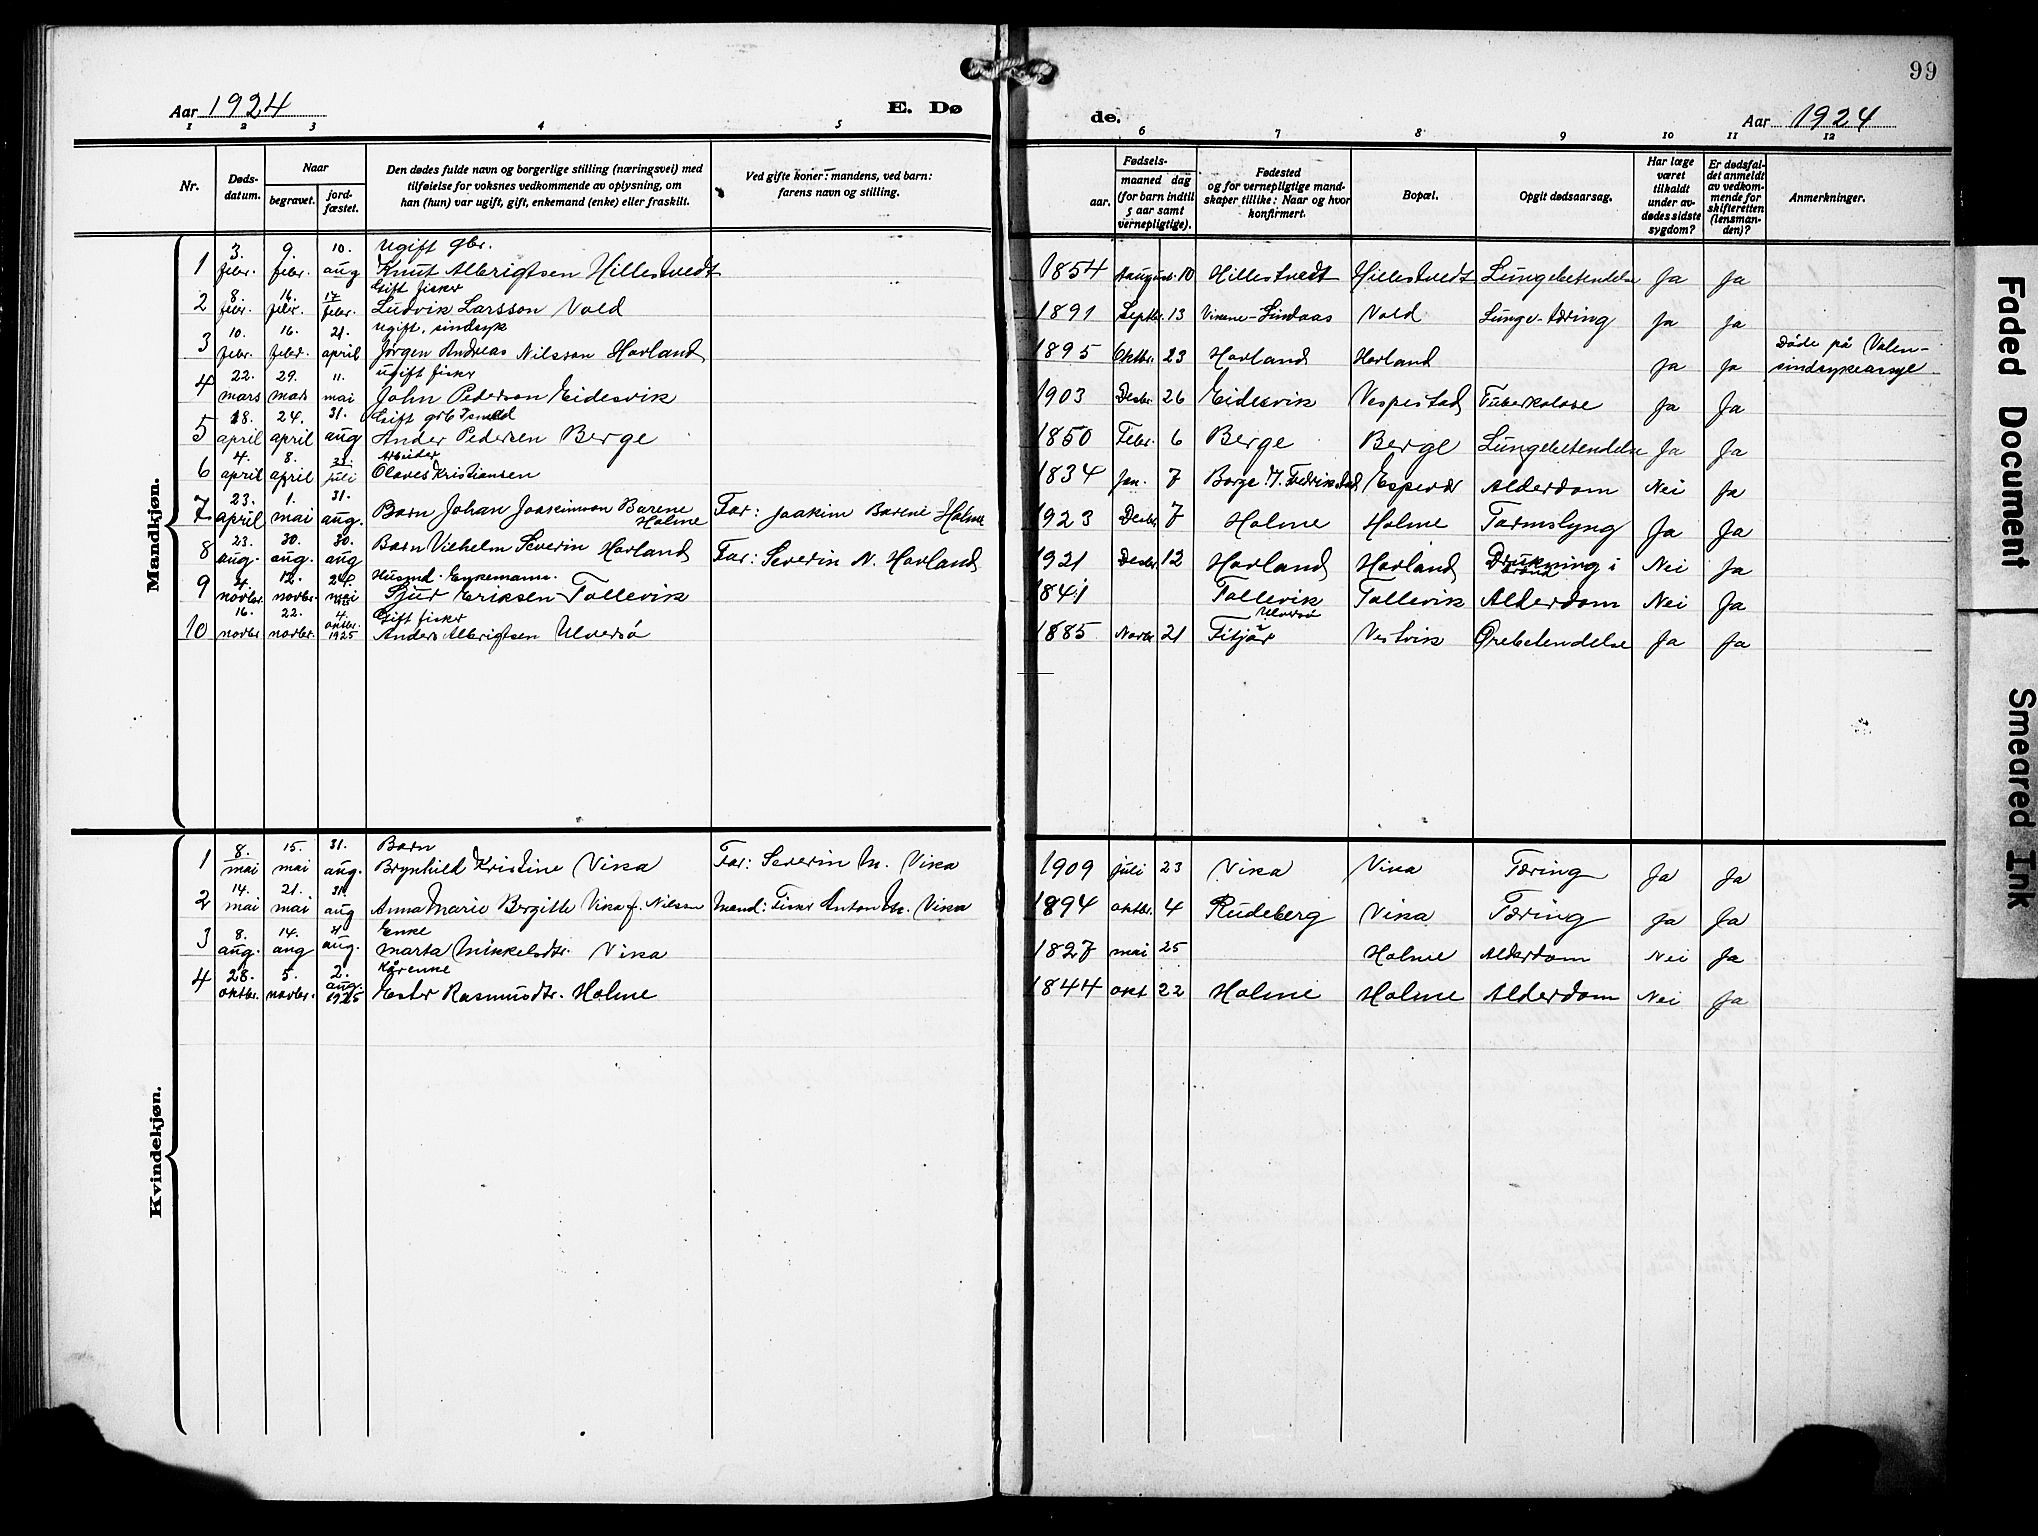 99
Aar 1924
E. Dø
de.
Aar 1924
1 2 3 4 5 6 7 8 9 10 11 12
Nr.
Døds-
datum.
Naar
begravet.
jord-
fæstet.
Den dødes fulde navn og borgerlige stilling (næringsvei) med
tilføielse for voksnes vedkommende av oplysning, om
han (hun) var ugift, gift, enkemand (enke) eller fraskilt.
Ved gifte koner: mandens, ved barn:
farens navn og stilling.
Fødsels-
aar.
maaned dag
(for barn indtil
5 aar samt
vernepligtige).
Fødested
og for vernepligtige mand-
skaper tillike: Naar og hvor
konfirmert.
Bopæl.
Opgit dødsaarsag.
Har læge
været
tilkaldt
under av-
dødes sidste
sygdom?
Er dødsfal-
det anmeldt
av vedkom-
mende for
skifteretten
(lensman-
den)?
Anmerkninger.
Mandkjøn.
3. 9. 10. Ugift gbr.
1 febr. febr. aug Knut Albrigtsen Hillestvedt 1854 August 10 Hillestvedt Hillestvedt Lungebetendelse Ja Ja
8. 16. 17 Gift fisker
2 febr. febr. febr. Ludvik Larsson Vold 1891 Septbr. 13 Vikene-Lindaas Vold Lunge-tæring Ja Ja
10. 16. 21. Ugift, sindsyk
3 febr. febr. april Jørgen Andreas Nilsson Hovland 1895 Oktbr. 23 Hovland Hovland Ja Ja Døde på Valen-
sindsykeasyl
22. 29. 11. ugift fisker
4 mars mars mai John Pederson Eidesvik 1903 Desbr. 26 Eidesvik Vespestad Tuberkolose Ja Ja
18. 24. 31. Gift grb
5 april april aug Ander Pedersen Berge 1850 Febr. 6 Berge Berge Lungebetendelse Ja Ja
4. 8. Arbeider
6 april april juli Olaves Kristiansen 1834 Jan. 7 Borge Fredrikstad Espevær Alderdom Nei Ja
23. 1. 31.
7 april mai aug. Barn Johan Joakimson Barene Holme Far: Joakim Barene Holme 1923 Desbr 7 Holme Holme Tarmslyng Ja Ja
23. 30. 30.
8 aug. aug. aug Barn Vilhelm Severin Hovland Far: Severin N. Hovland 1921 Desbr 12 Hovland Hovland Drukning i Nei Ja
4. 12. 24. Husmd. Enkemann.
9 novbr. novbr. mai Sjur Eriksen Tollevik 1841 Tollevik Tollevik Alderdom Nei Ja
16. 22. 4. Gift fisker
10 novbr novbr. oktbr. 1925 Anders Albrigtsen Ulversø 1885 Novbr 21 Ulversø Fitjar Vestvik Ørebetendelse Ja Ja
Kvindekjøn.
8. 15. 31. Barn
1 mai mai aug. Brynhild Kristine Vika Far: Severin M. Vika 1909 juli 23 Vika Vika Tæring Ja Ja
14. 21. 31
2 mai mai aug Anna Marie Bergitte Vika f. Nilsson Mand: Fisker Anton M. Vika 1894 oktbr. 4 Rudeberg Vika Tæring Ja Ja
8. 14. 31 Enke
3 aug. aug aug. Marta Mikkelsdtr. Vika 1827 mai 25 Holme Alderdom Nei Ja
28. 5. 2. Kårenke
4 oktbr. novbr. aug. 1925 Ester Rasmusdtr. Holme 1844 okt 22 Holme Holme Alderdom Nei Ja
Faded Document
Smeared Ink